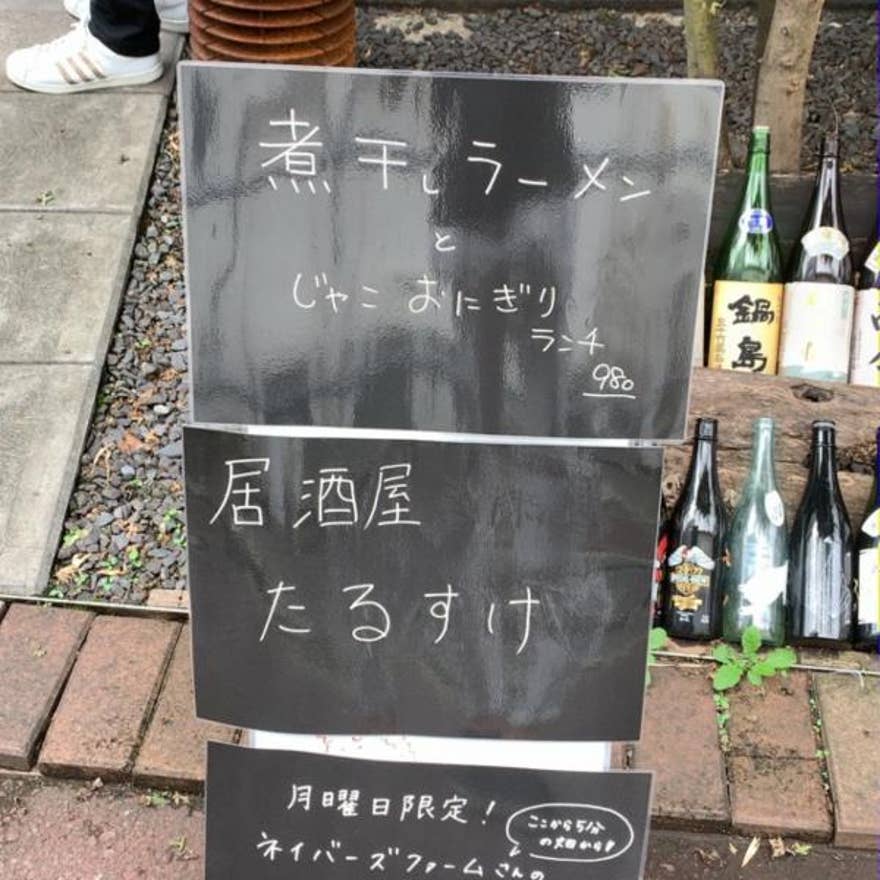 煮干しラーメン
と
じゃこ おにぎり
ランチ
980
居酒屋
たるすけ
月曜日限定！
ここから5分
の畑から！
ネイバーズファームさんの
鍋島